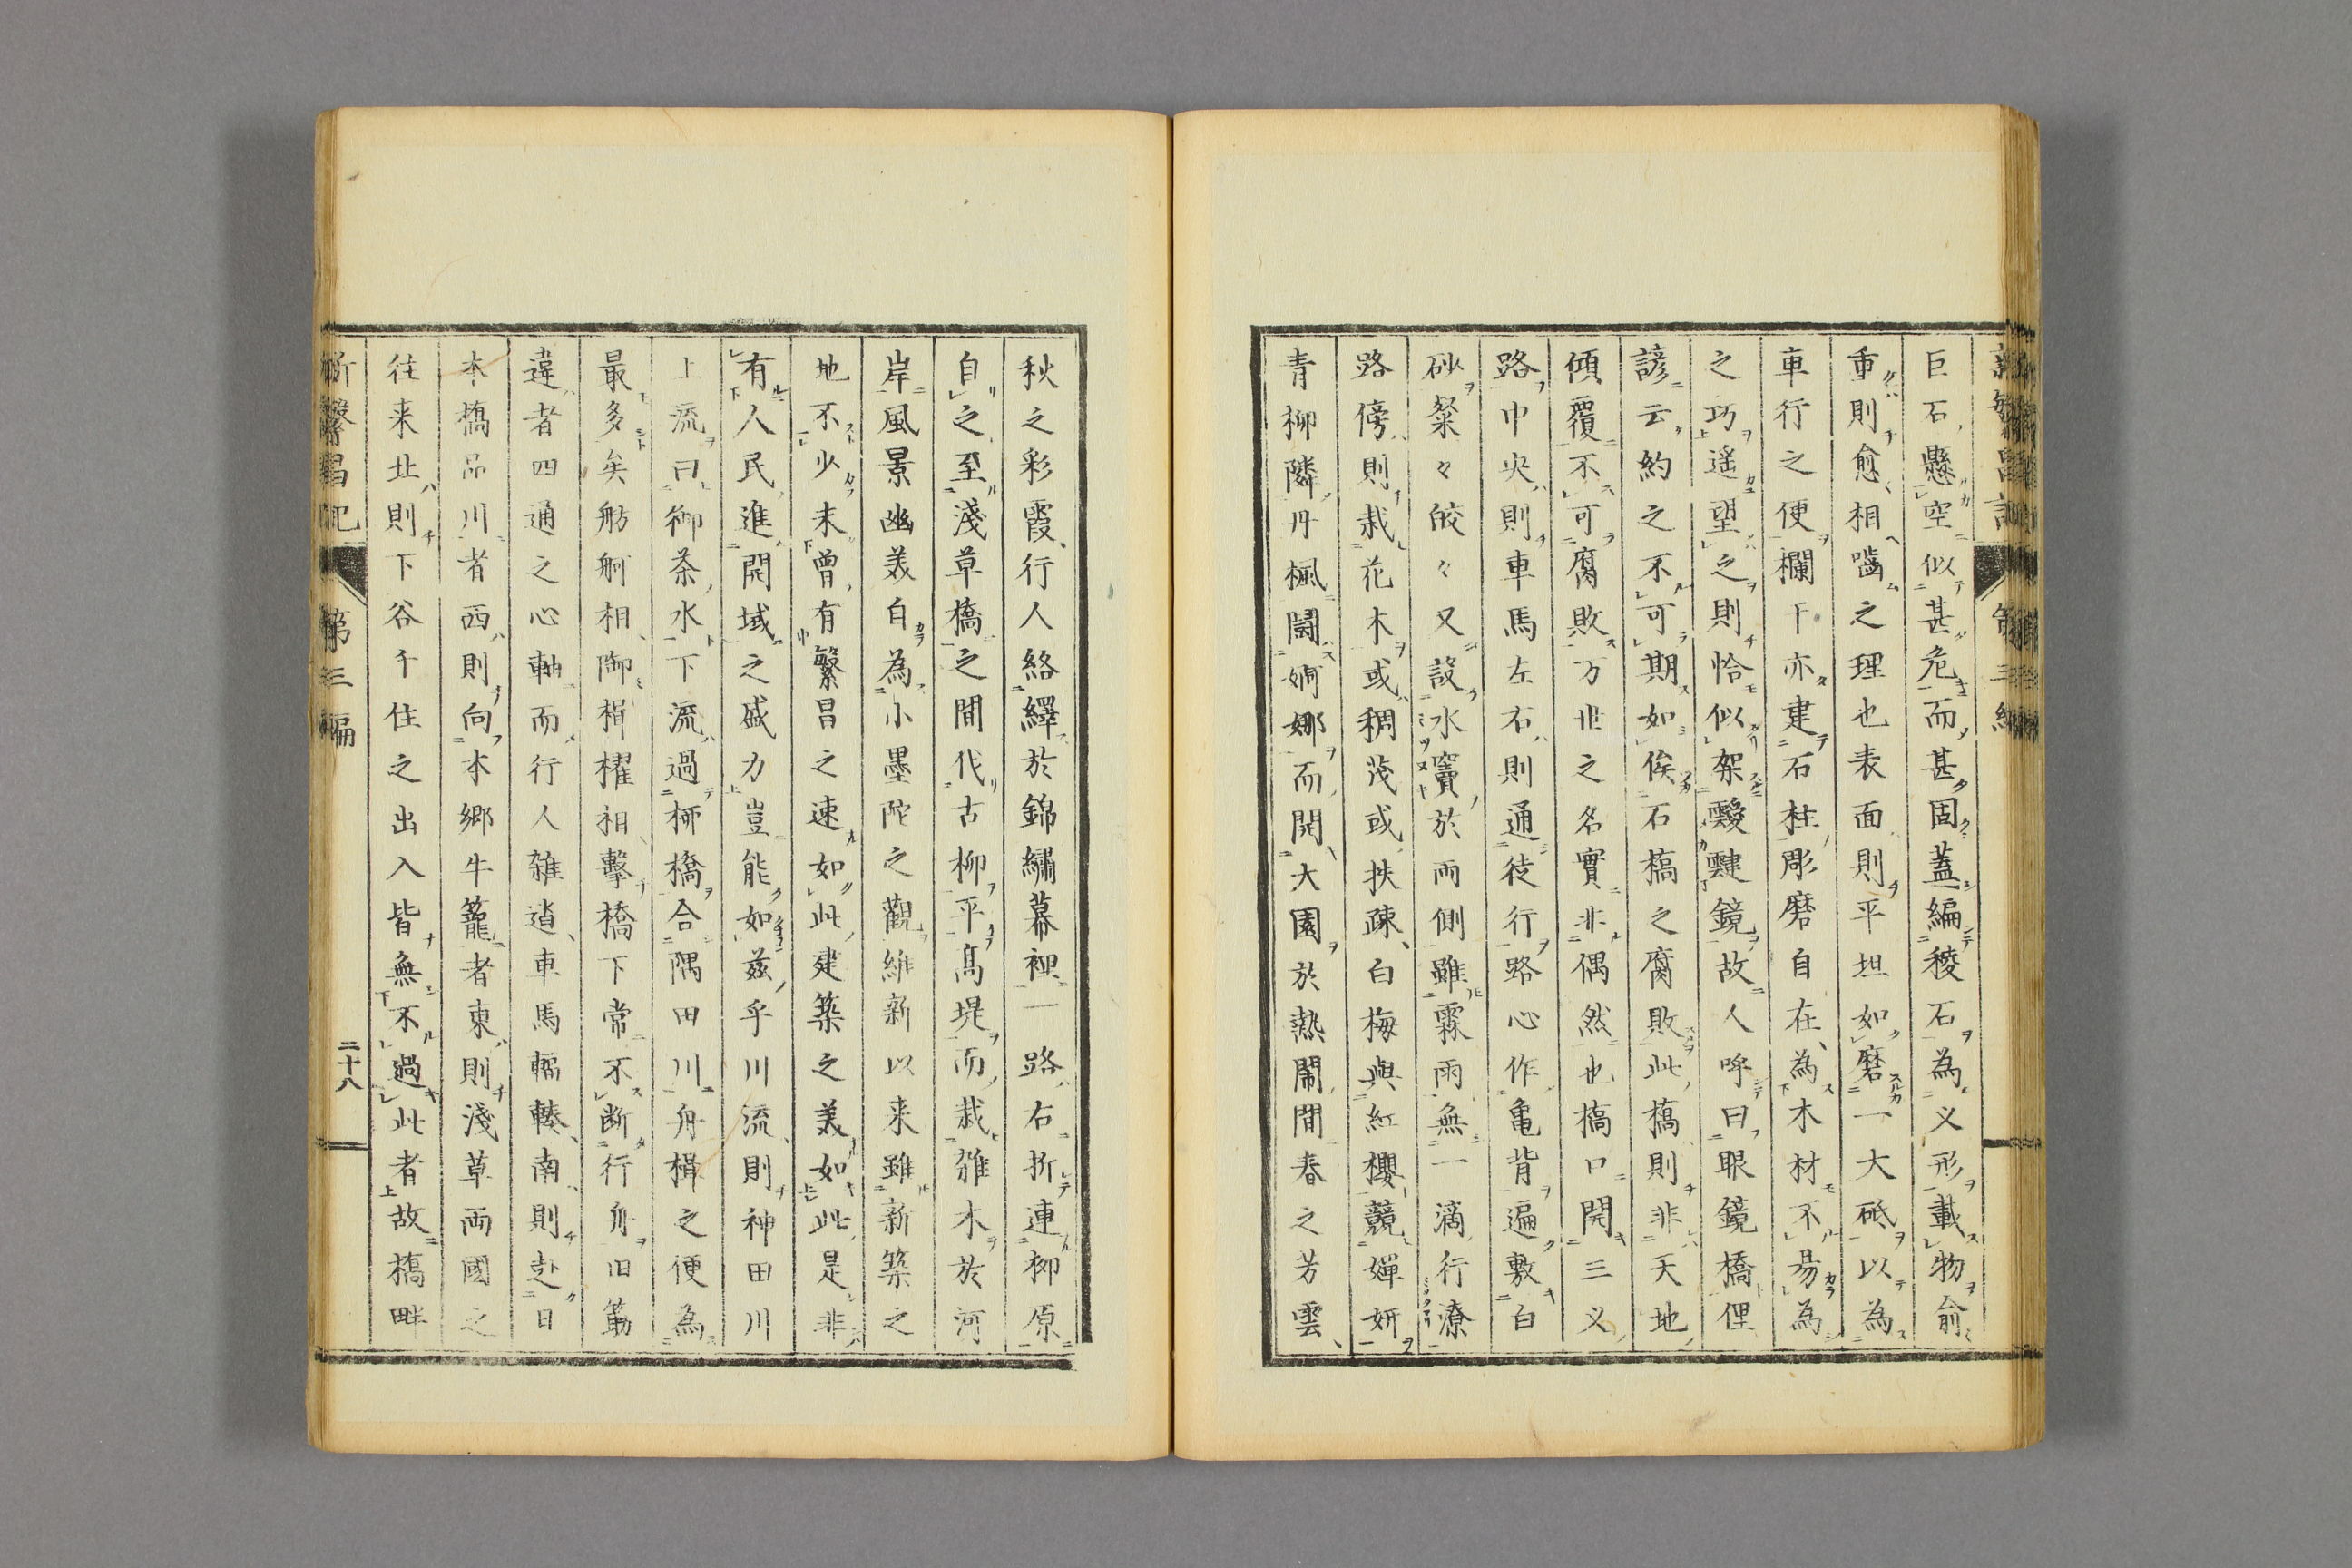 巨石懸空似甚危而甚固蓋編稜石為义形載物俞
重則愈相嚙之理也表面則平坦如磨一大砥以為
車行之便欄干亦建石柱彫磨自在為木材不易為
之巧遙望之則恰似架靉靆鏡故人呼曰眼鏡橋俚
諺云約之不可期如俟石槗之腐敗此槗則非天地
傾覆不可腐敗万世之名實非偶然也槗口開三义
路中央則車馬左右則通徒行路心作亀背遍敷白
砂粲々皎々又設水竇於両側雖霖雨無一滴行潦
路傍則栽花木或稠茂或扶疎白梅與紅櫻競嬋妍
青柳隣丹楓闘婀娜而開大園於熱鬧間春之芳雲
秋之彩霞行人絡繹於錦繡幕裡一路右折連柳原
自之至淺草橋之間伐古柳平髙堤而栽雑木於河
岸風景幽美自為小墨陀之觀維新以来雖新築之
地不少未曽有繁昌之速如此建築之美如此是非
有人民進開域之盛力豈能如茲乎川流則神田川
上流曰御茶水下流過栁橋合隅田川舟楫之便為
最多矣舫舸相啣楫櫂相擊橋下常不断行舟旧筋
違者四通之心軸而行人雑遝車馬輻輳南則赴日
本橋品川者西則向本郷牛籠者東則淺草両國之
往来北則下谷千住之出入皆無不過此者故橋畔
新繁昌記 第三編 二十八